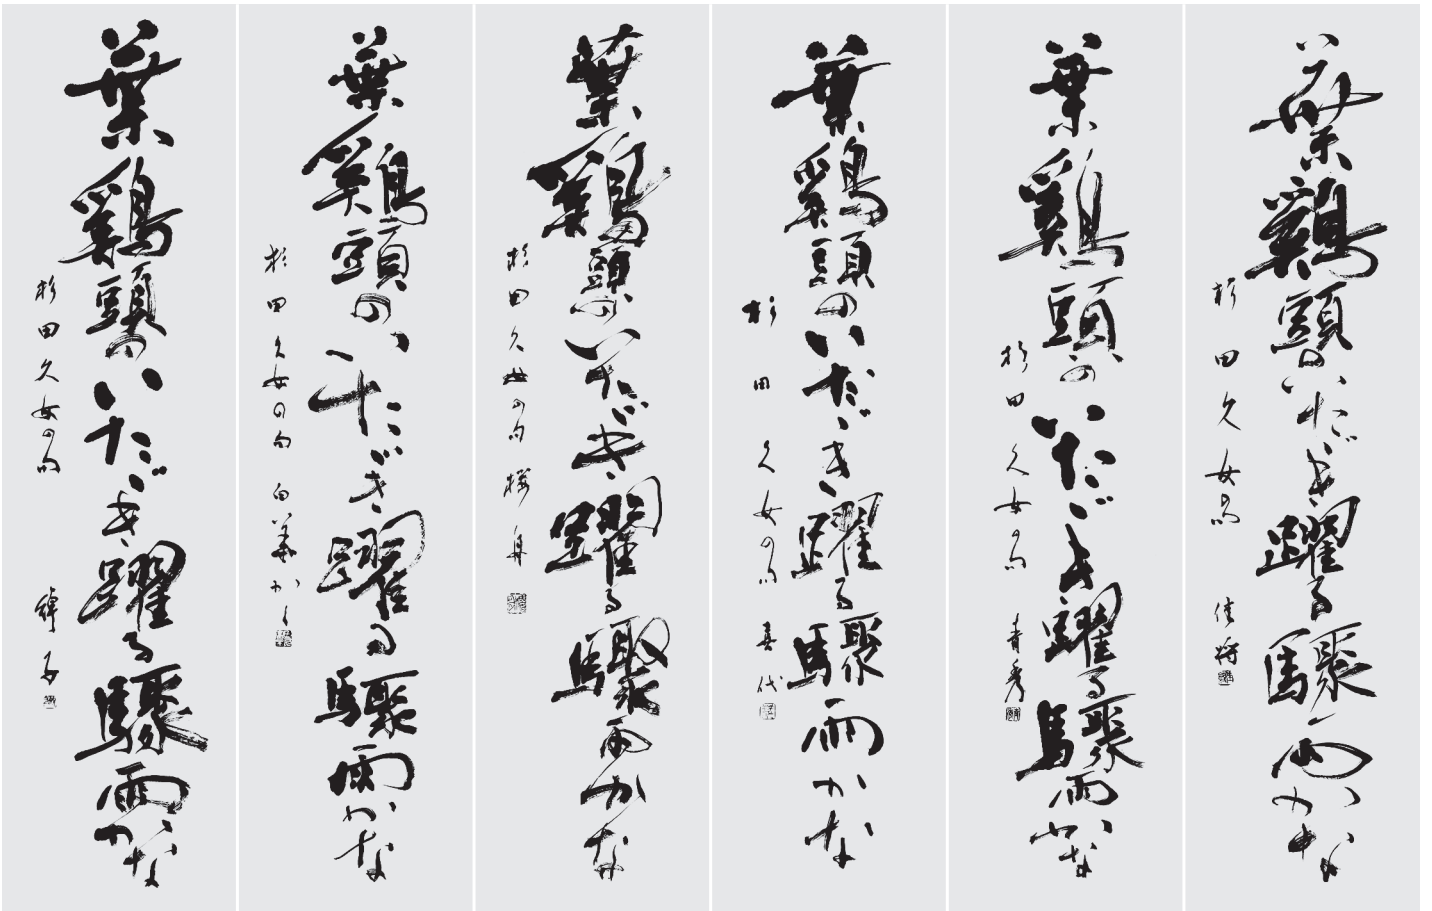 葉鶏頭のいたゞき躍る驟雨かな
杉田久女句
葉鶏頭のいたゞき躍る驟雨かな
杉田久女の句 青秀
葉鶏頭のいたゞき躍る驟雨かな
杉田久女の句 喜代
葉鶏頭のいたゞき躍る驟雨かな
杉田久女の句
葉鶏頭のいたゞき躍る驟雨かな
杉田久女の句
葉鶏頭のいたゞき躍る驟雨かな
杉田久女の句